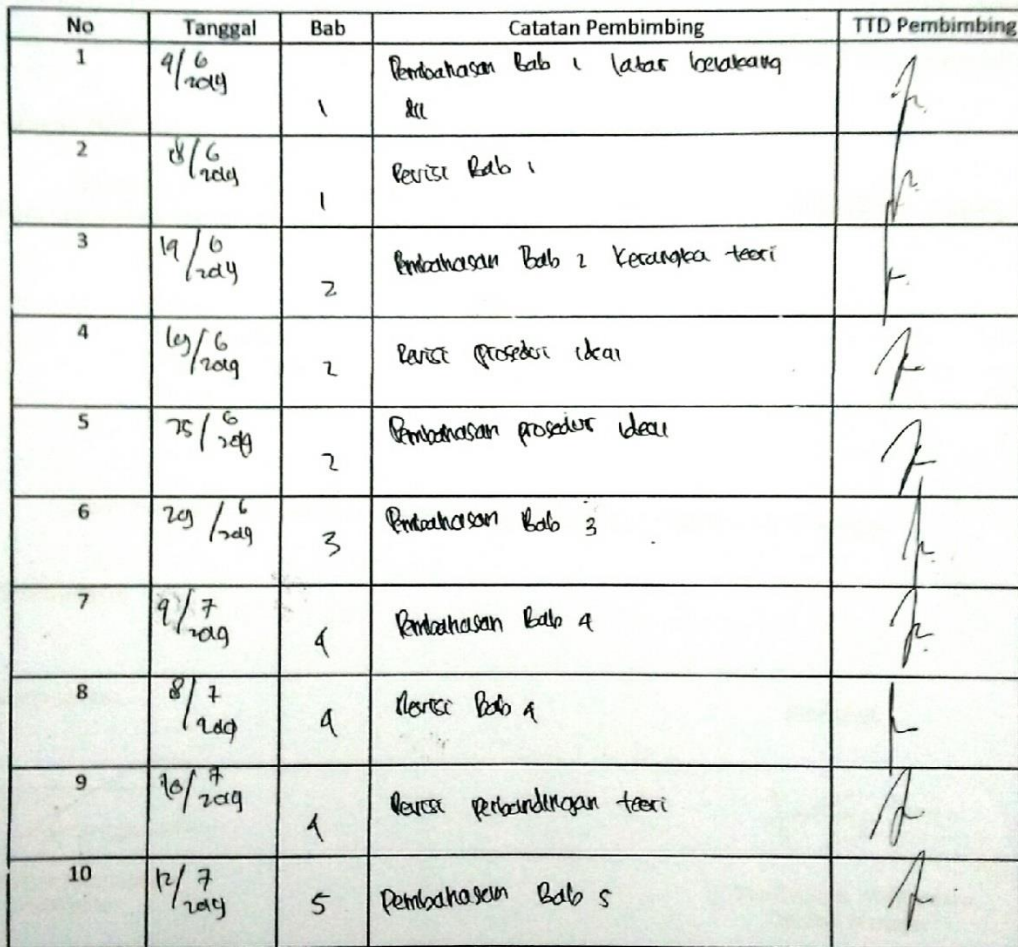 No Tanggal Bab Catatan Pembimbing TTD Pembimbing
1 4/6 2019 1 Pembahasan Bab 1 latar belakang
dll
2 8/6 2019 1 Revisi Bab 1
3 14/6 2019 2 Pembahasan Bab 2 Kerangka teori
4 19/6 2019 2 Revisi prosedur ideal
5 25/6 2019 2 Pembahasan prosedur ideal
6 29/6 2019 3 Pembahasan Bab 3
7 4/7 2019 4 Pembahasan Bab 4
8 8/7 2019 4 Revisi Bab 4
9 10/7 2019 4 Revisi perbandingan teori
10 12/7 2019 5 Pembahasan Bab 5